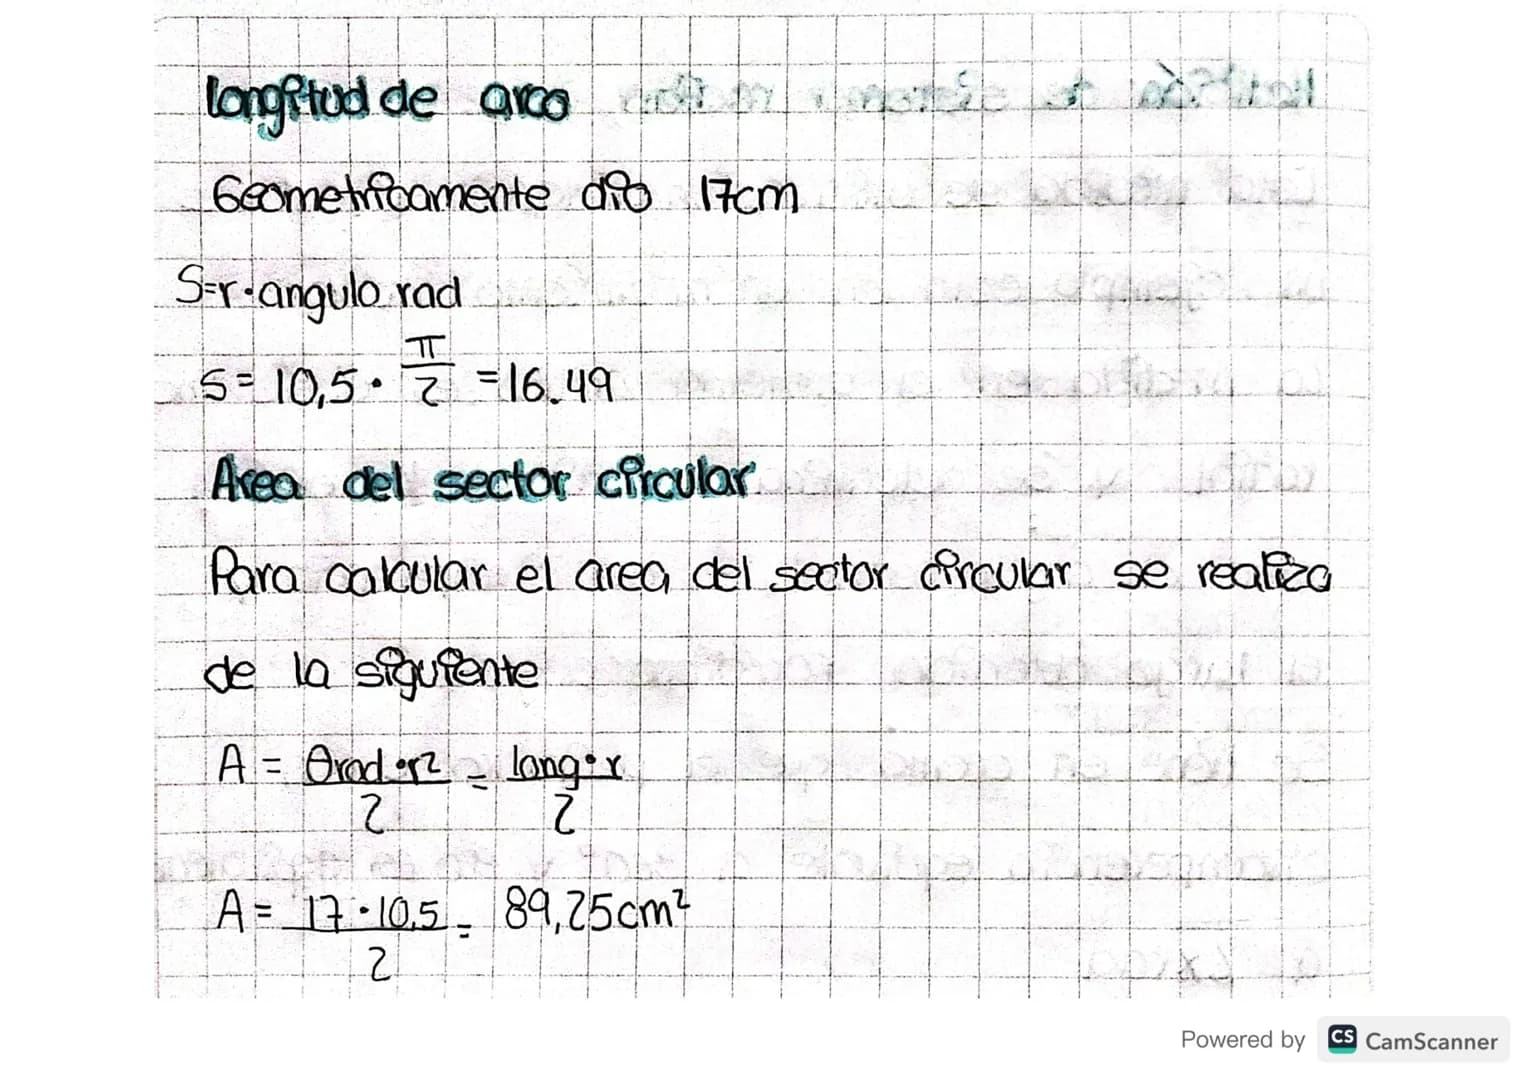 longitud de arco
Geometricamente dio 17cm
S=r·angulo rad
S= 10,5 · π/2 = 16.49
Area del sector circular
Para calcular el area del sector circular se realiza
de la siguiente
A = θrad·r2/2 = long·r/2
A = 17·10,5/2 = 89,25cm²
Powered by CS CamScanner